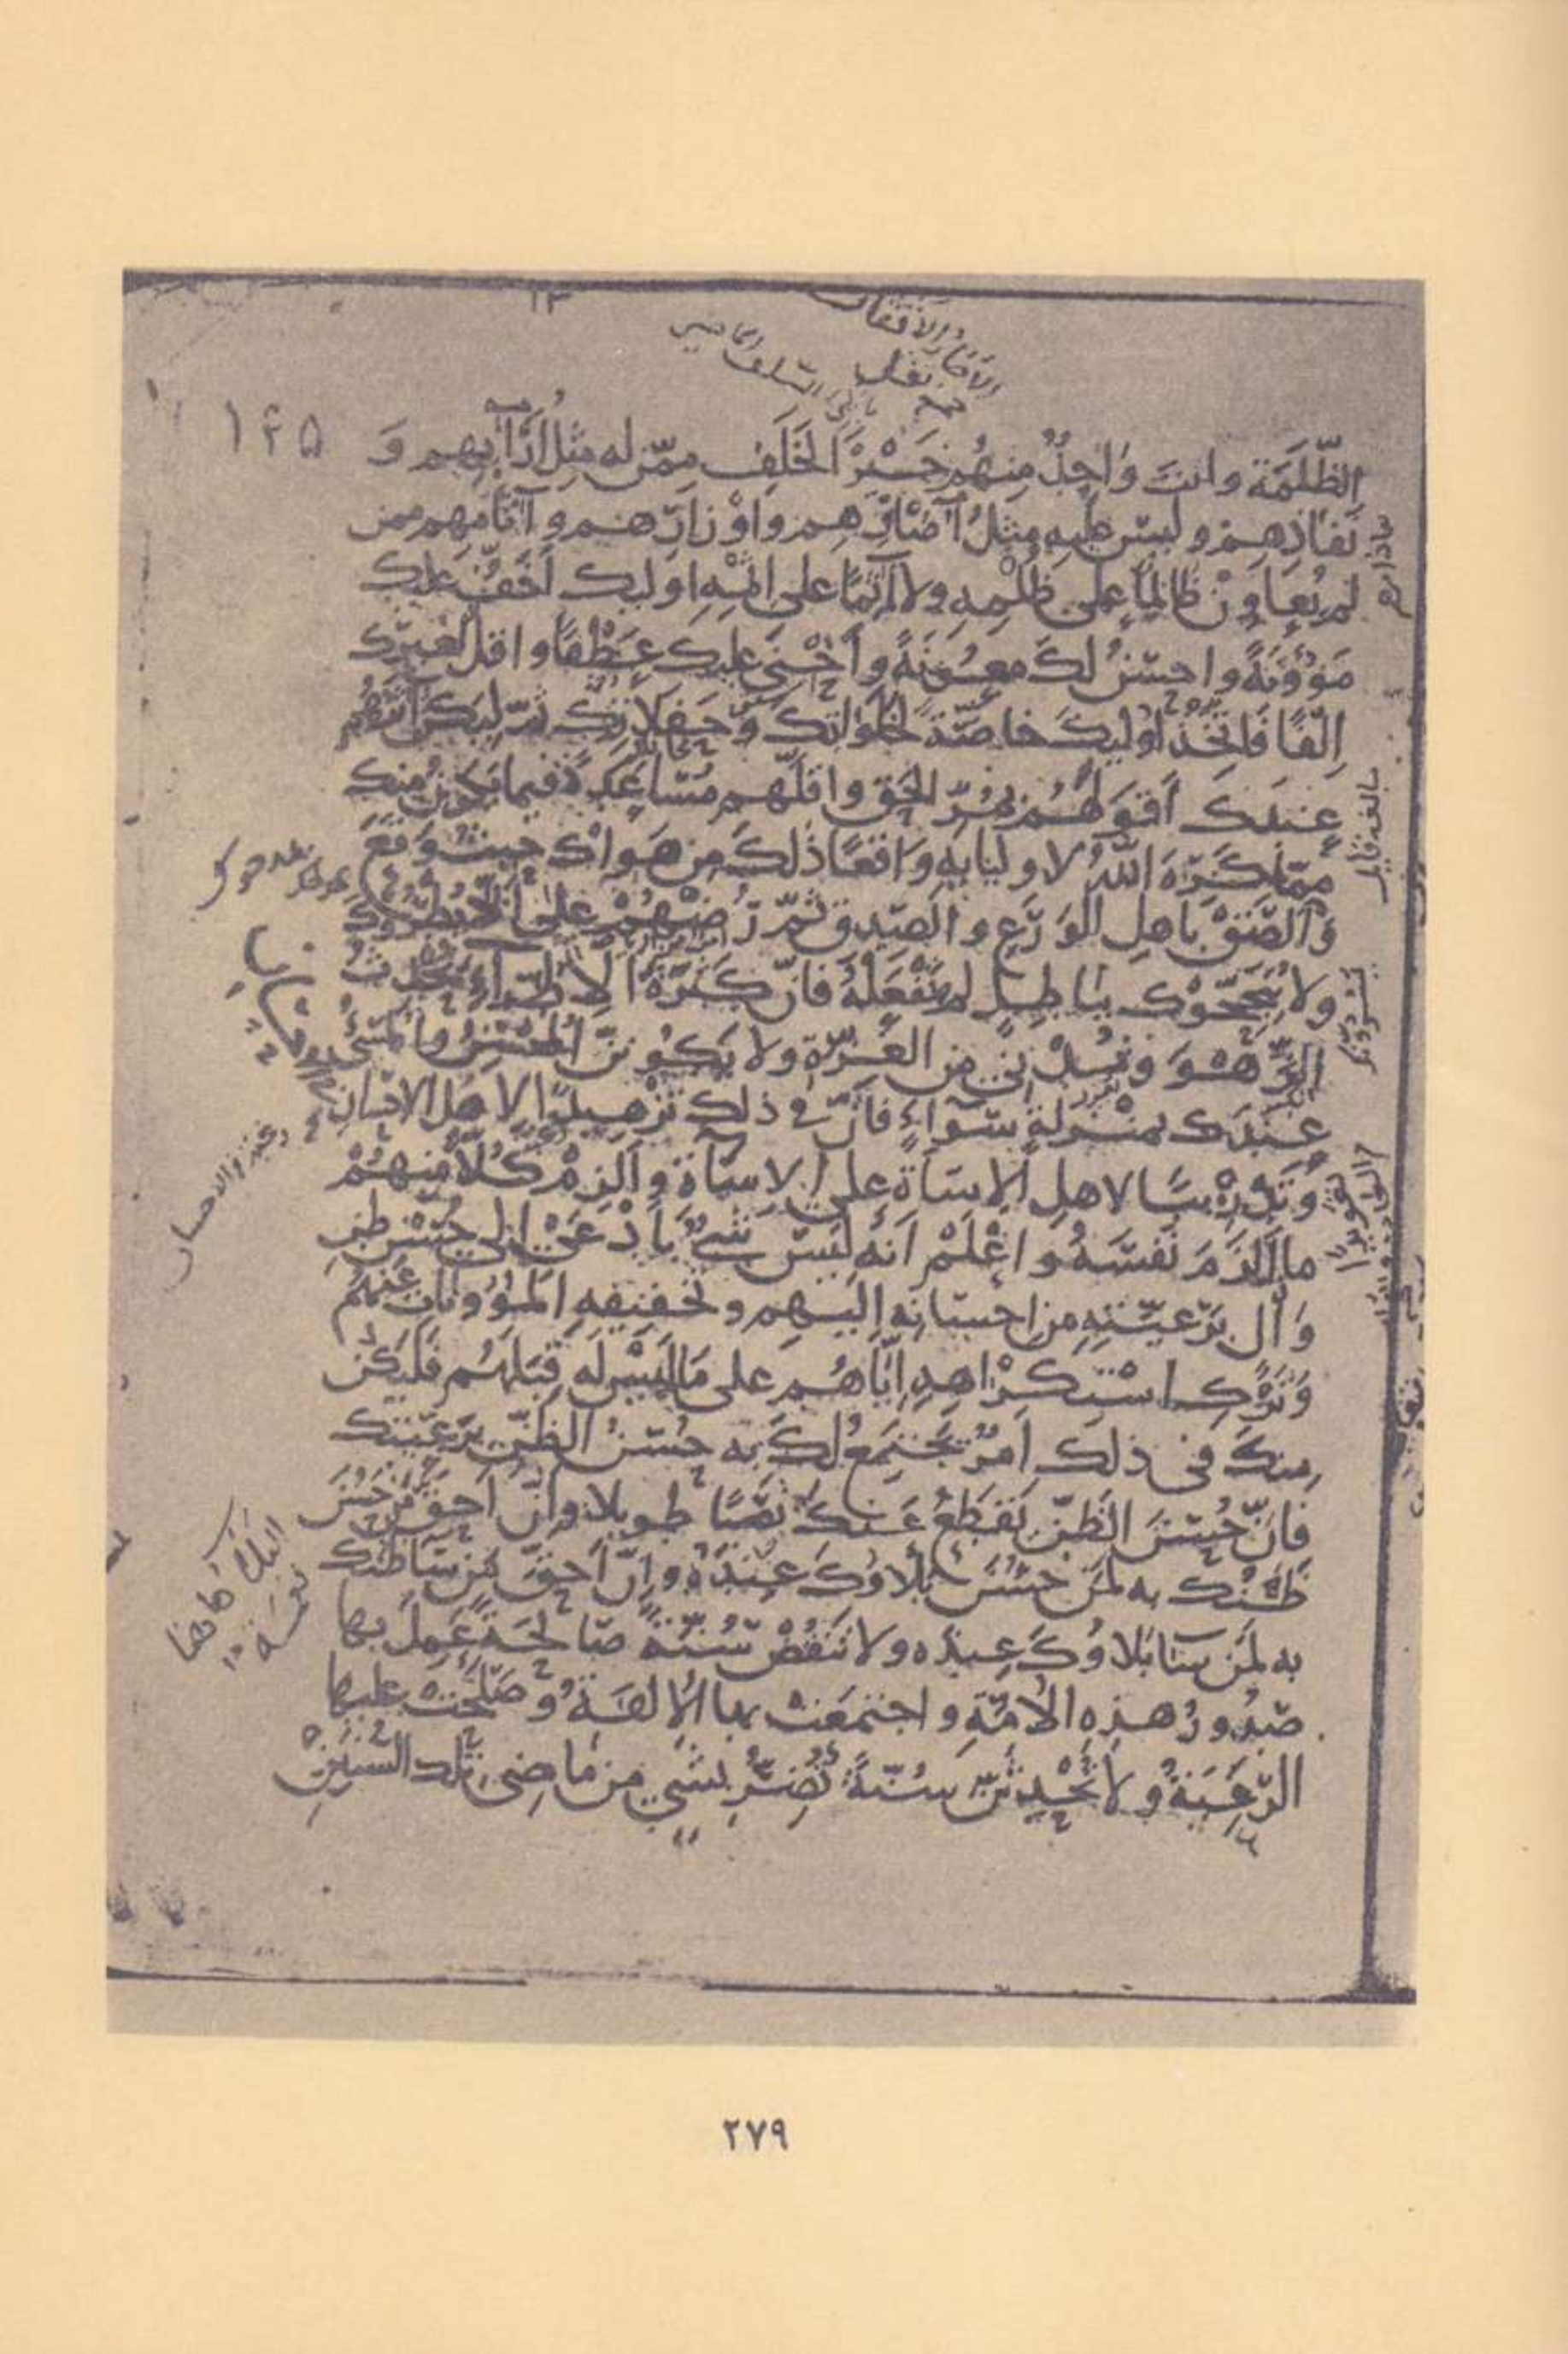 ١٤٥
الظَّلَمَة وانت وَاجِدٌ مِنهُم خَيْرَ الخَلَفِ مِمّن له مِثلُ آرَآئِهِم وَ
نَفَاذِهِم وليسَ عليهِ مِثلُ آصَارِهِم وَاوْزارِهم وآثامِهم ممن
لم يُعاوِنْ ظَالِمًا على ظُلْمِهِ ولا آثِمًا على اثمِهِ اوليك أَخَفُّ عليك
مَؤُونَةً واحسَنُ لكَ معُونَةً وأَحْنَى عليك عَطْفًا واقل لغيرك
إِلْفًا فَاتّخِذْ أوليكَ خاصّةً لخَلَواتِك وحَفلاتِك ثم ليكن آثرُهم
عِندَكَ أَقوَلَهُم بمُرّ الحق واقلّهم مُسَاعدةً فيما يكون منك
ممّا كَرِهَ اللهُ لاوليايهِ وَاقعًا ذلكَ من هَواكَ حيث وقَعَ
وَالصَقْ باهلِ الوَرَعِ والصّدق ثم رُضْهُمْ على ألا يُطرُوك
ولا يُبَجِّحُوك بباطِلٍ لم تَفْعَلْهُ فانّ كَثرَةَ الإِطْرَآءِ تُحدِثُ
الزّهْوَ وتُدْني من العِزّة ولا يكُونَنّ المُحسِنُ والمُسِيُ
عِندَك بمنْزِلةٍ سَوآءٍ فانّ في ذلك تزهيدًا لاهل الاحسانِ
في الاحسان
وَتَدْرِيبًا لاهلِ الإساءَةِ على الإِساءَةِ وَألزِمْ كُلاّ مِنهُمْ
ما أَلزَمَ نَفسَهُ واعْلَمْ أنه لَيسَ شيءٌ بأَدْعَى الى حُسْنِ ظنِ
وَالٍ بِرَعيّتِهِ من احسانِه إليهِم وتخفيفِهِ المؤوناتِ عَنهُم
وَتَرْكِ استِكْرَاهِهِ إيّاهُم على مَا لَيسَ له قِبَلَهُم فليكن
منكَ في ذلك أمرٌ يَجتَمِعُ لكَ به حُسنُ الظنّ برَعيّتك
فانّ حُسنَ الظنّ يَقطَعُ عنكَ نَصَبًا طويلا وانّ أحقّ من حَسُنَ
ظنّك به لمَن حَسُنَ بلاؤُكَ عِندَهُ وانّ أحقّ مَن سَاءَ ظنّك
به لمَن ساءَ بَلاوُكَ عِندَه ولا تَنقُضْ سُنّةً صَالحَةً عَمِلَ بها
صُدُورُ هذِه الأمّةِ واجتمعَت بها الألفَةُ وَصَلَحَت عليها
الرّعِيّةُ ولا تُحْدِثَنّ سُنّةً تُضِرّ بشيءٍ من ماضي تلك السُّنَنِ
٢٧٩